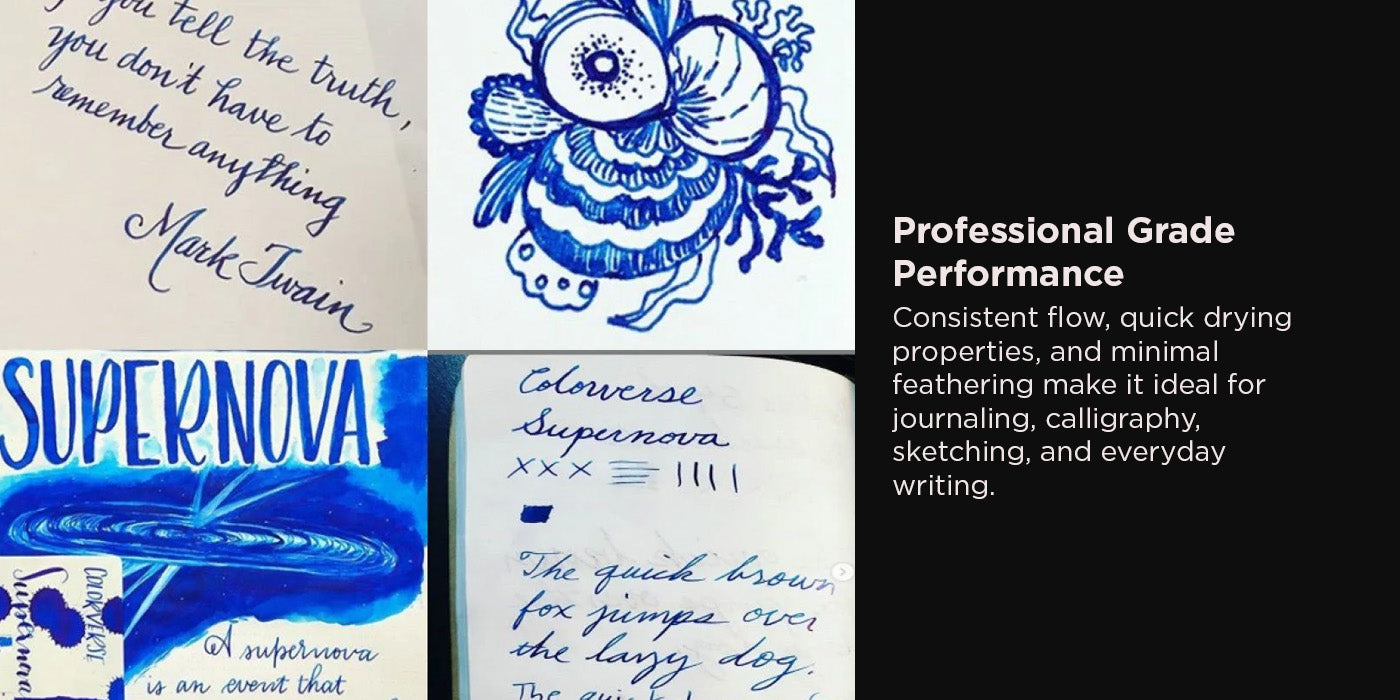 you tell the truth,
you don't have to
remember anything
Mark Twain
SUPERNOVA
COLORVERSE
Supernova
A supernova
is an event that
Colorverse
Supernova
X X X
The quick brown
fox jumps over
the lazy dog.
The quick
Professional Grade
Performance
Consistent flow, quick drying
properties, and minimal
feathering make it ideal for
journaling, calligraphy,
sketching, and everyday
writing.